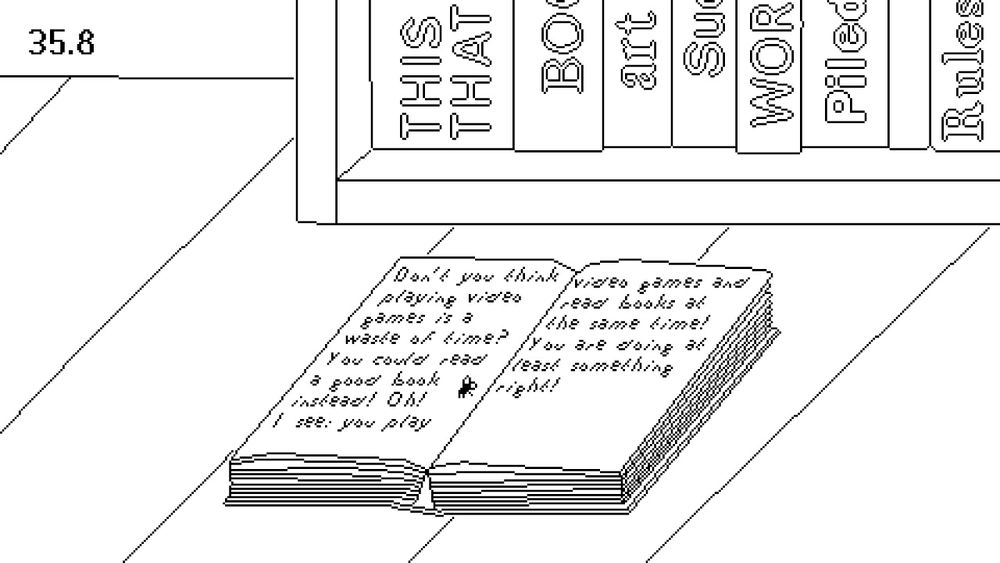 35.8
THIS
THAT
BOO
art
Suc
WOR
Piled
Rules
Don't you think
playing video
games is a
waste of time?
You could read
a good book
instead! Oh!
I see: you play
video games and
read books at
the same time!
You are doing at
least something
right!